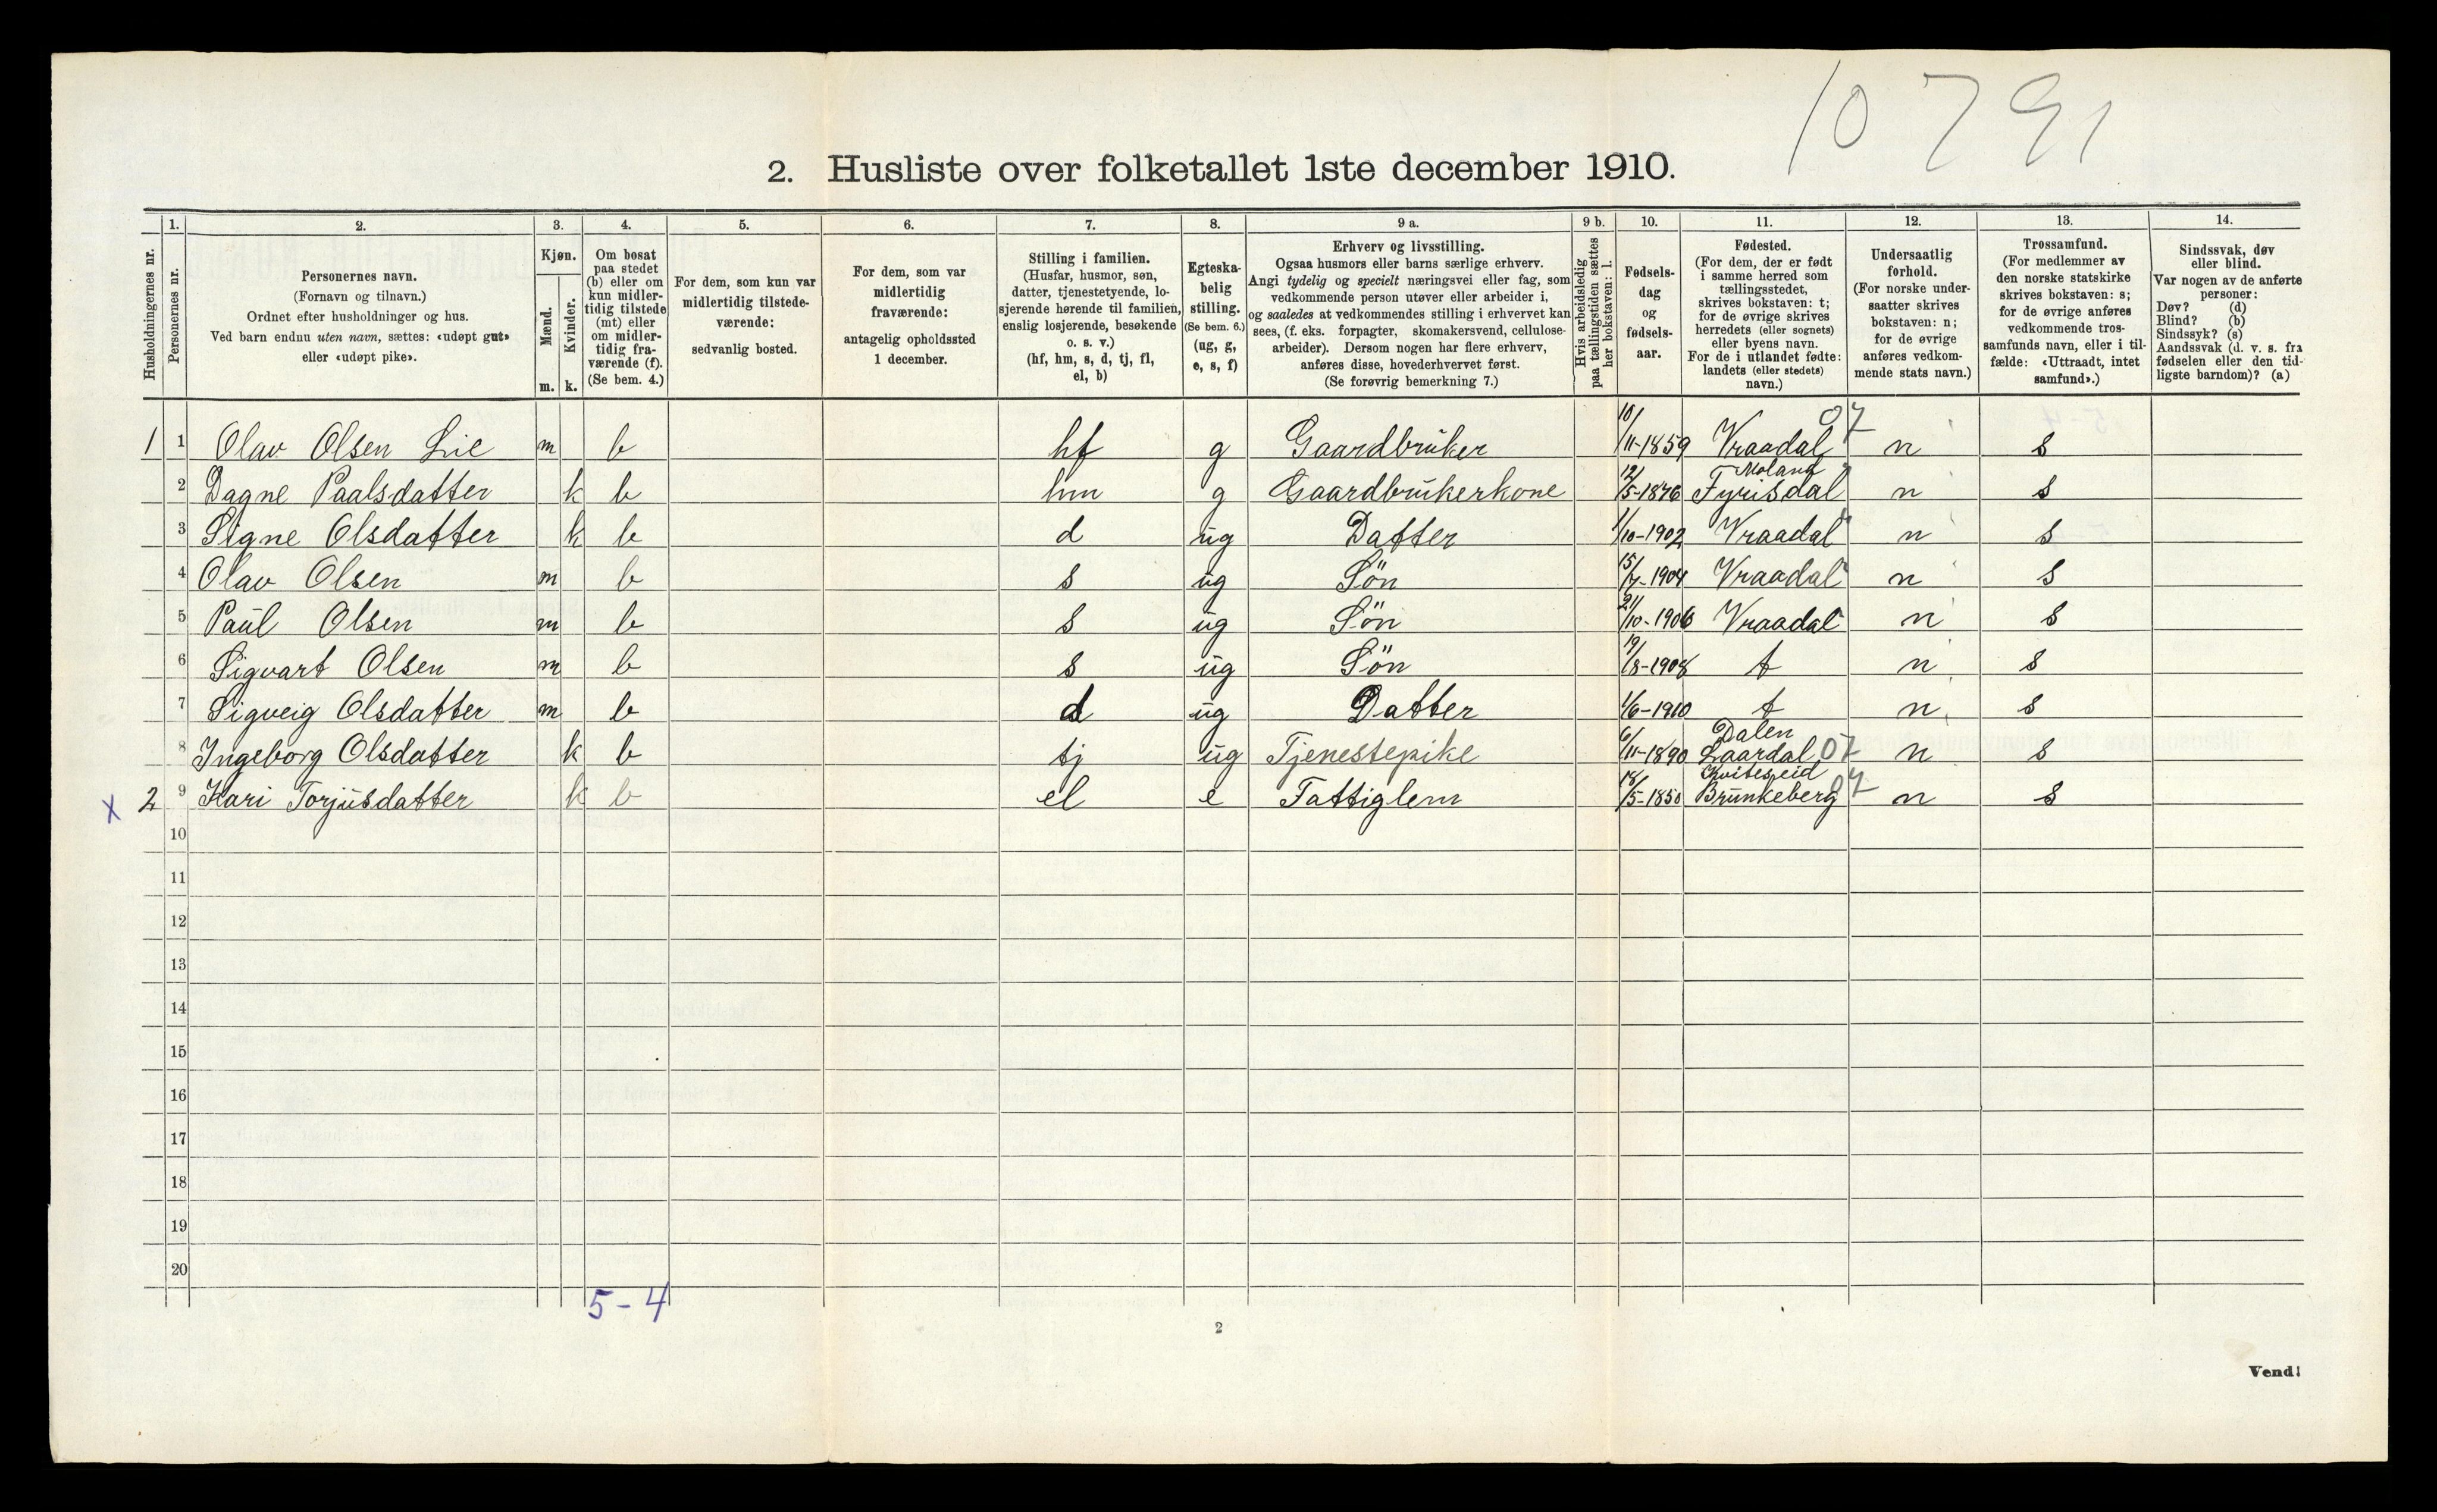 10 791
2. Husliste over folketallet 1ste december 1910.
Husholdningernes nr.
1.
Personernes nr.
2.
Personernes navn.
(Fornavn og tilnavn.)
Ordnet efter husholdninger og hus.
Ved barn endnu uten navn, sættes: «udøpt gut»
eller «udøpt pike».
3.
Kjøn.
Mænd.
Kvinder.
m. k.
4.
Om bosat
paa stedet
(b) eller om
kun midler-
tidig tilstede
(mt) eller
om midler-
tidig fra-
værende (f).
(Se bem. 4.)
5.
For dem, som kun var
midlertidig tilstede-
værende:
sedvanlig bosted.
6.
For dem, som var
midlertidig
fraværende:
antagelig opholdssted
1 december.
7.
Stilling i familien.
(Husfar, husmor, søn,
datter, tjenestetyende, lo-
sjerende hørende til familien,
enslig losjerende, besøkende
o. s. v.)
(hf, hm, s, d, tj, fl,
el, b)
8.
Egteska-
belig
stilling.
(Se bem. 6.)
(ug, g,
e, s, f)
9 a.
Erhverv og livsstilling.
Ogsaa husmors eller barns særlige erhverv.
Angi tydelig og specielt næringsvei eller fag, som
vedkommende person utøver eller arbeider i,
og saaledes at vedkommendes stilling i erhvervet kan
sees, (f. eks. forpagter, skomakersvend, cellulose-
arbeider). Dersom nogen har flere erhverv,
anføres disse, hovederhvervet først.
(Se forøvrig bemerkning 7.)
9 b.
Hvis arbeidsledig
paa tællingstiden sættes
her bokstaven: l.
10.
Fødsels-
dag
og
fødsels-
aar.
11.
Fødested.
(For dem, der er født
i samme herred som
tællingsstedet,
skrives bokstaven: t;
for de øvrige skrives
herredets (eller sognets)
eller byens navn.
For de i utlandet fødte:
landets (eller stedets)
navn.)
12.
Undersaatlig
forhold.
(For norske under-
saatter skrives
bokstaven: n;
for de øvrige
anføres vedkom-
mende stats navn.)
13.
Trossamfund.
(For medlemmer av
den norske statskirke
skrives bokstaven: s;
for de øvrige anføres
vedkommende tros-
samfunds navn, eller i til-
fælde: «Uttraadt, intet
samfund».)
14.
Sindssvak, døv
eller blind.
Var nogen av de anførte
personer:
Døv? (d)
Blind? (b)
Sindssyk? (s)
Aandssvak (d. v. s. fra
fødselen eller den tid-
ligste barndom)? (a)
1 1 Olav Olsen Lie m b hf g Gaardbruker 10/11-1859 Vraadal 07 n s
2 Dagne Paalsdatter k b hm g Gaardbrukerkone 12/5-1876 Moland Fyrisdal n s
3 Signe Olsdatter k b d ug Datter 1/10-1902 Vraadal n s
4 Olav Olsen m b s ug Sön 15/7-1904 Vraadal n s
5 Paul Olsen m b s ug Sön 21/10-1906 Vraadal n s
6 Sigvart Olsen m b s ug Sön 19/8-1908 t n s
7 Sigveig Olsdatter m b d ug Datter 1/6-1910 t n s
8 Ingeborg Olsdatter k b tj ug Tjenestepike 6/11-1890 Dalen Laardal 07 n s
x 2 9 Kari Torjusdatter k b el e Fattiglem 18/5-1850 Kviteseid Brunkeberg 07 n s
10
11
12
13
14
15
16
17
18
19
20
5-4
2
Vend!